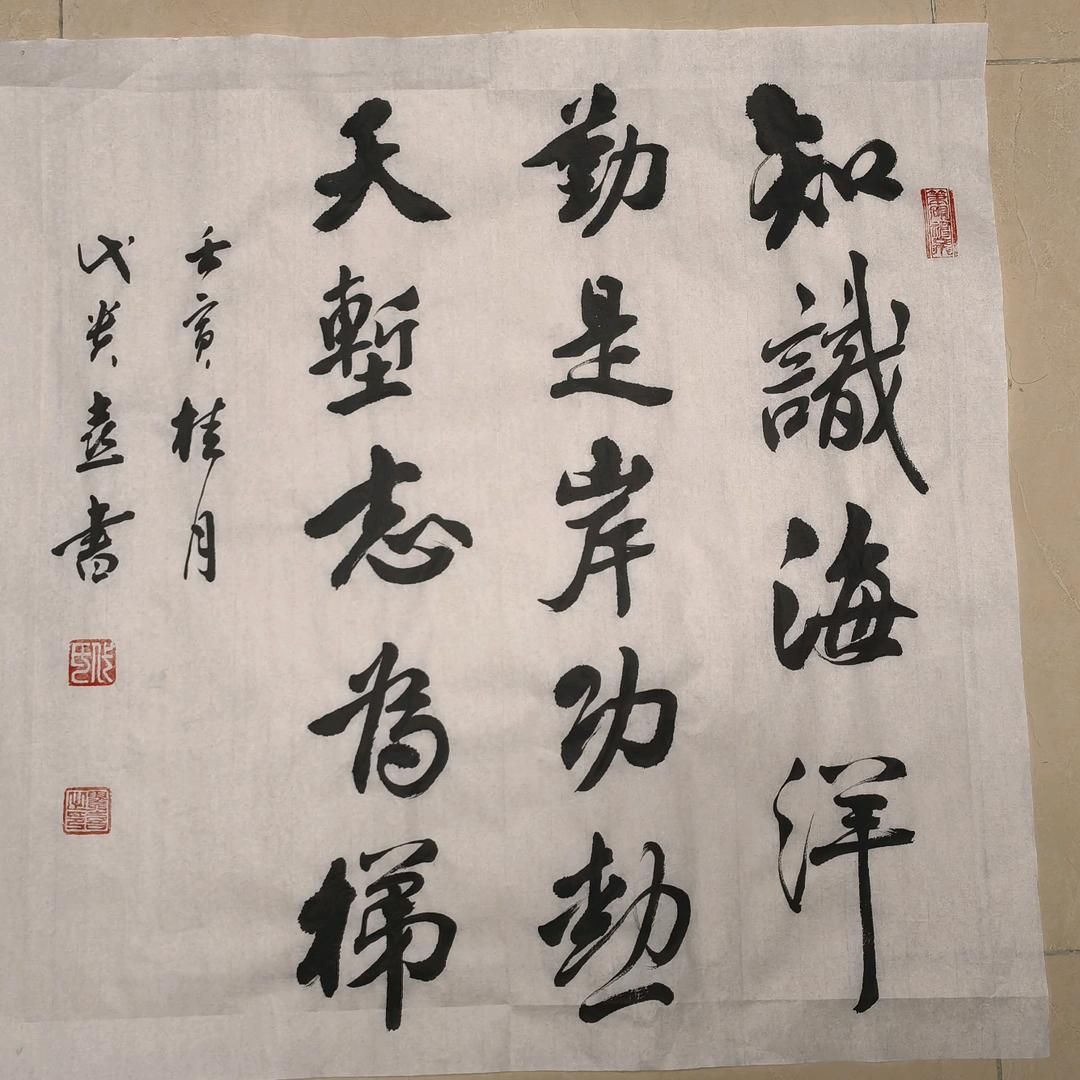 知識海洋
勤是岸功勲
天塹志為梯
壬寅桂月
代貴喜書